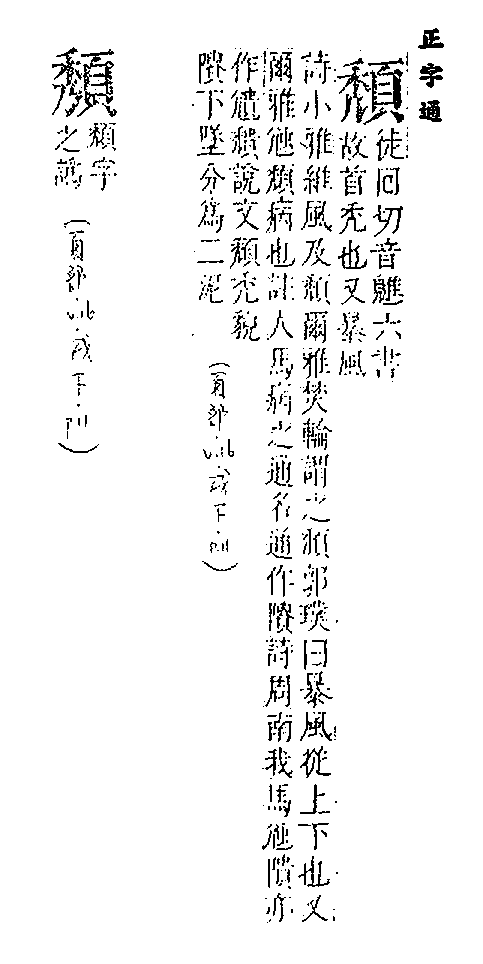 正字通
頹
徒回切音魋六書
故首禿也又暴風
詩小雅維風及頹爾雅焚輪謂之頹郭璞曰暴風從上下也又
爾雅虺頹病也註人馬病之通名通作隤詩周南我馬虺隤亦
作㿉說文頹禿貌
隤下墜分爲二泥
(頁部·戌下·P11)
頹字
之譌
(頁部·戌下·P11)